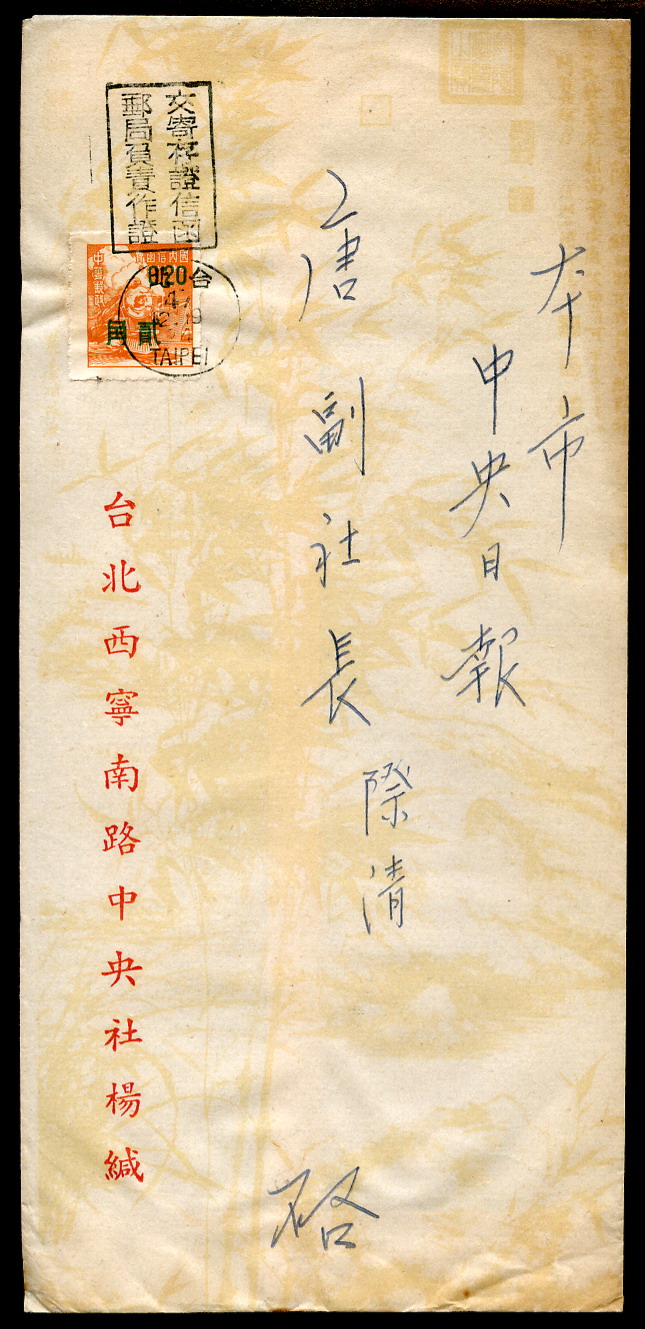 本市
中央日報
唐副社長際清
啓
交寄存證信函
郵局負責作證
國內信函費
中華郵政
20
貳角
台北
TAIPEI
台北西寧南路中央社楊緘